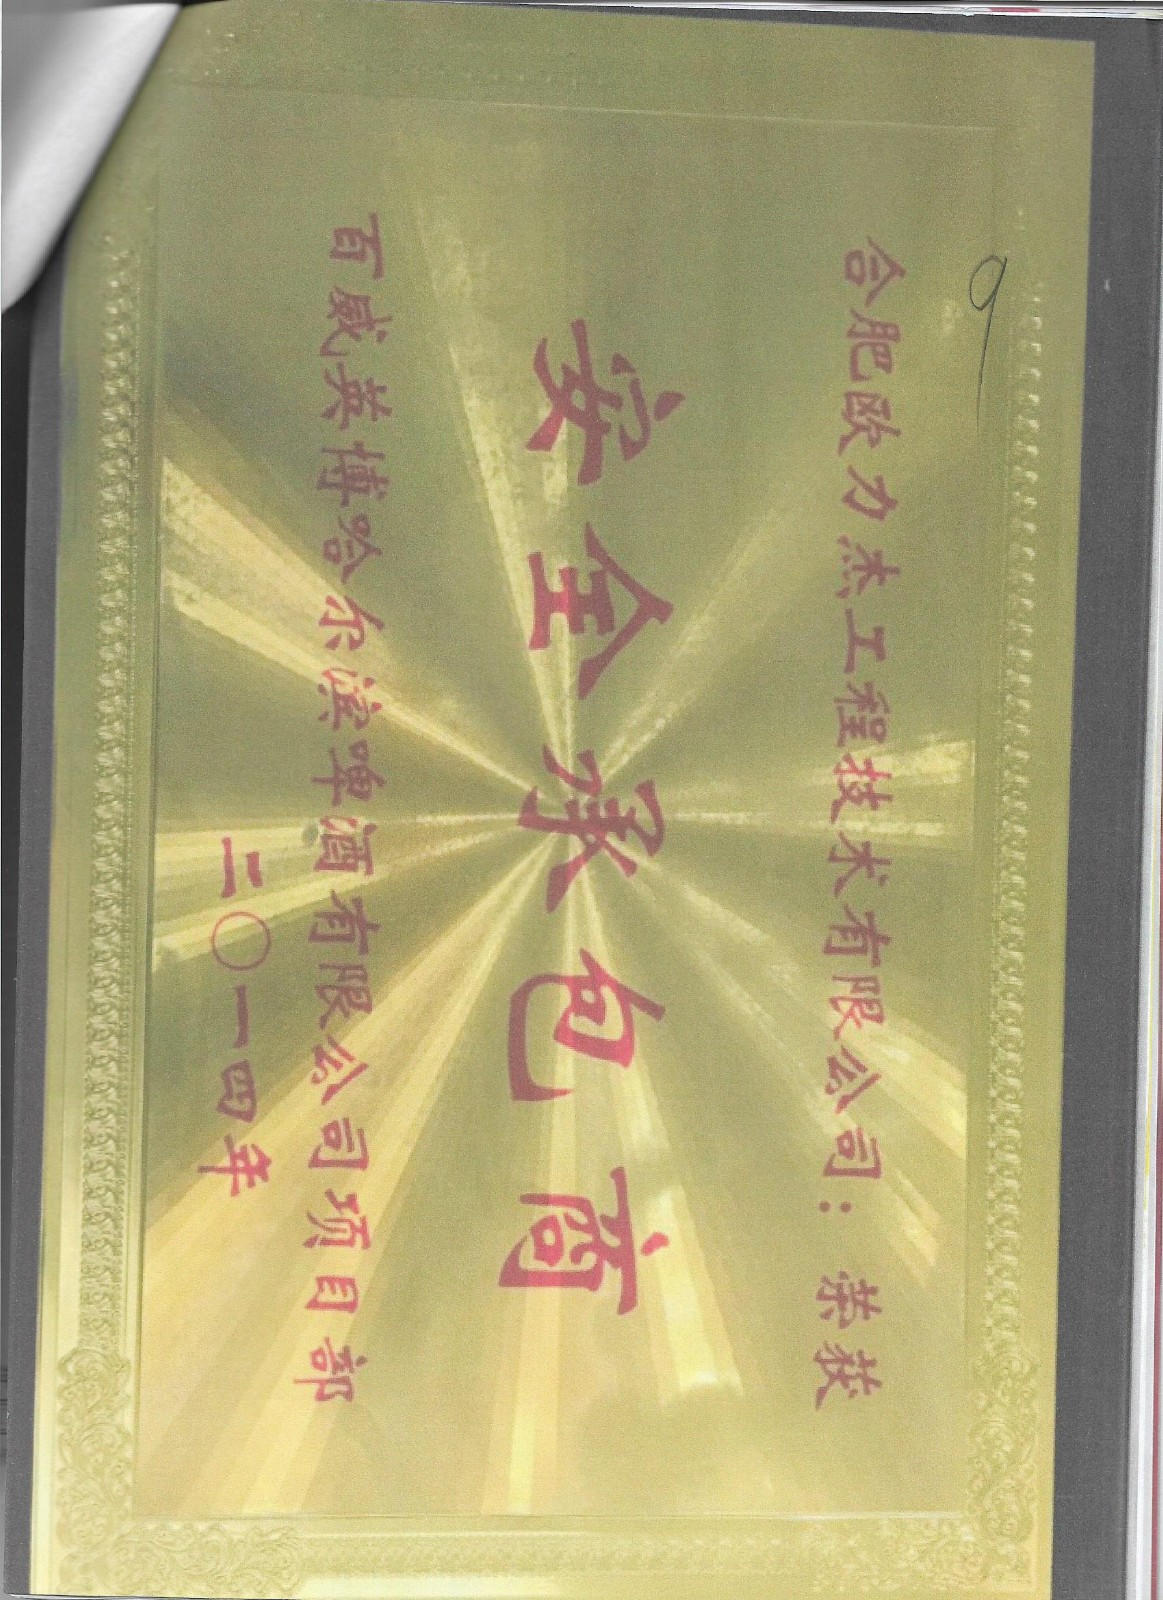 合肥欧力杰工程技术有限公司：荣获
安全承包商
百威英博哈尔滨啤酒有限公司项目部
二〇一四年